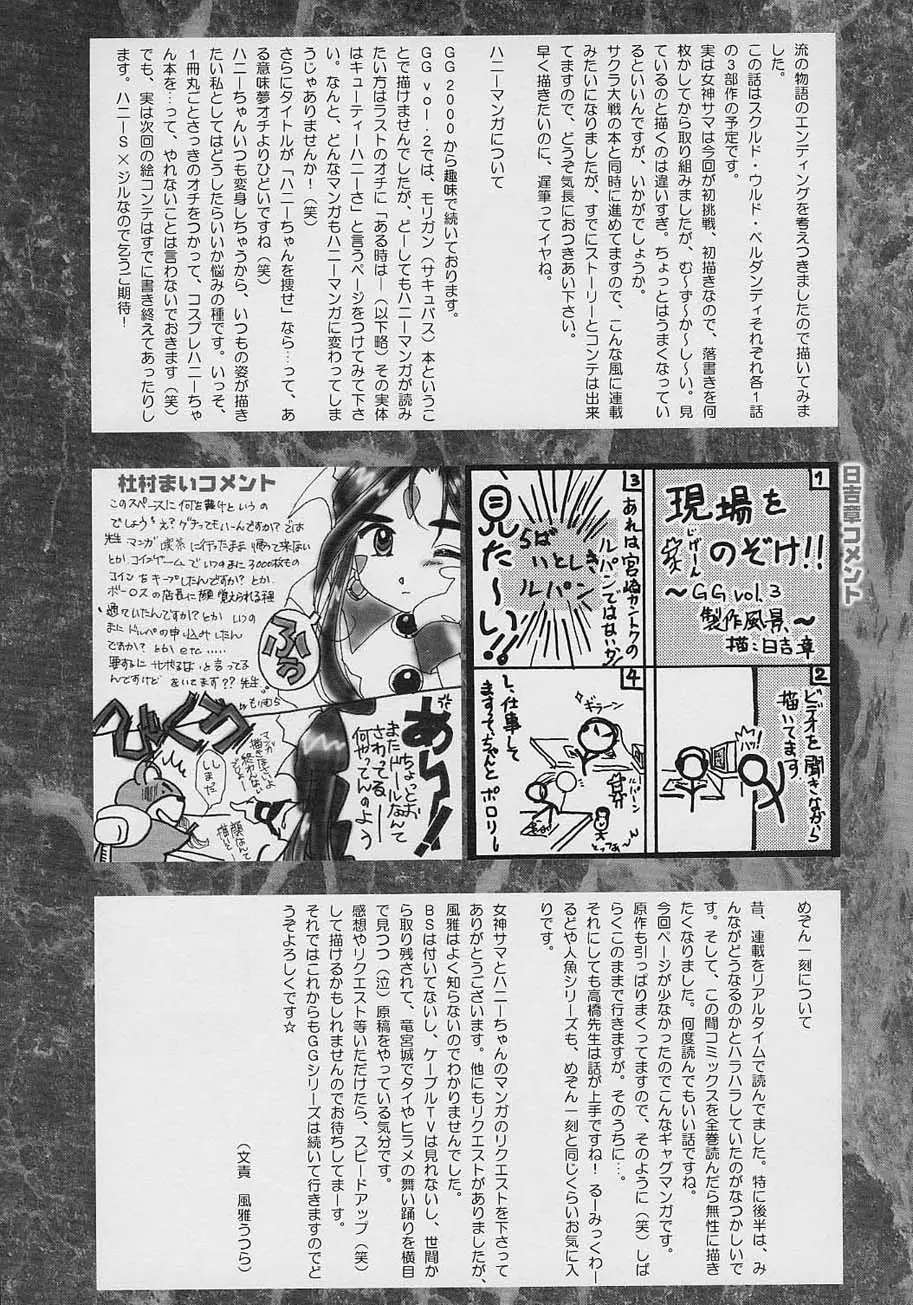 流の物語のエンディングを考えつきましたので描いてみま
した。
この話はスクルド・ウルド・ベルダンディそれぞれ各１話
の３部作の予定です。
実は女神サマは今回が初挑戦、初描きなので、落書きを何
枚かしてから取り組みましたが、む～ず～か～し～い。見
ているのと描くのは違いすぎ。ちょっとはうまくなってい
るといいんですが、いかがでしょうか。
サクラ大戦の本と同時に進めてますので、こんな風に連載
みたいになりましたが、すでにストーリーとコンテは出来
てますので、どうぞ気長におつきあい下さい。
早く描きたいのに、遅筆ってイヤね。
ハニーマンガについて
GG 2000から趣味で続いております。
GG vol.2では、モリガン（サキュバス）本というこ
とで描けませんでしたが、どーしてもハニーマンガが読み
たい方はラストのオチに「ある時は―（以下略）その実体
はキューティーハニーさ」と言うページをつけてみて下さ
い。なんと、どんなマンガもハニーマンガに変わってしま
うじゃありませんか！（笑）
さらにタイトルが「ハニーちゃんを捜せ」なら…って、あ
る意味夢オチよりひどいですね（笑）
ハニーちゃんいつも変身しちゃうから、いつもの姿が描き
たい私としてはどうしたらいいか悩みの種です。いっそ、
１冊丸ごとさっきのオチをつかって、コスプレハニーちゃ
ん本を…って、やれないことは言わないでおきます（笑）
でも、実は次回の絵コンテはすでに書き終えてあったりし
ます。ハニーS×ジルなので乞うご期待！
日吉章コメント
1
現場を
のぞけ!!
～GG vol.3
製作風景～
描:日吉章
2
ビデオを聞きながら
描いてます
3
あれは宮崎カントクの
ルパンではないか
らば
いとしき
ルパン
見た～い!!
4
ギラーン
ルパーン
とっつぁ～ん
し、仕事して
ますってちゃんと ポロリー
杜村まいコメント
このスペースに何を書けというの
でしょう?え?グチってもいーんですか?では
先生 マンガ喫茶に行ったまま帰って来ない
とか コインゲームでいつのまに3000枚もの
コインをキープしたんですか?とか
ボーロスの店長に顔覚えられる程
通っていたんですか?とか いつの
まにドルパの申し込みしたん
ですか? とか etc.....
要するに
んですけどきいてます?? 先生
ふぅ
びくぅ
あら!!
ちょっとお―
またドールなんて
さわってる
何やってんのよう
マンガ
描き
終わんない
でしょー
ししまった
顔なんて
描いと
めぞん一刻について
昔、連載をリアルタイムで読んでました。特に後半は、み
んながどうなるのかとハラハラしていたのがなつかしいで
す。そして、この間コミックスを全巻読んだら無性に描き
たくなりました。何度読んでもいい話ですね。
今回ページが少なかったのでこんなギャグマンガです。
原作も引っぱりまくってますので、そのように（笑）しば
らくこのままで行きますが。そのうちに…。
それにしても高橋先生は話が上手ですね！るーみっくわー
るどや人魚シリーズも、めぞん一刻と同じくらいお気に入
りです。
女神サマとハニーちゃんのマンガのリクエストを下さって
ありがとうございます。他にもリクエストがありましたが、
風雅はよく知らないのでわかりませんでした。
BSは付いてないし、ケーブルTVは見れないし、世間か
ら取り残されて、竜宮城でタイやヒラメの舞い踊りを横目
で見つつ（泣）原稿をやっている気分です。
感想やリクエスト等いただけたら、スピードアップ（笑）
して描けるかもしれませんのでお待ちしてまーす。
それではこれからもGGシリーズは続いて行きますのでど
うぞよろしくです☆
（文責　風雅うつら）